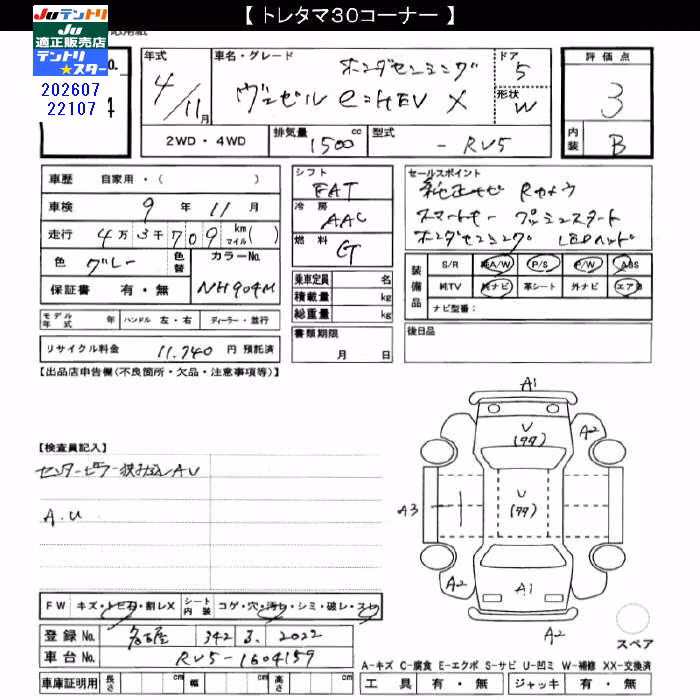 【 トレタマ30コーナー 】
Juテントリ
Ju
適正販売店
テントリ
★スター
202607
22107
No.
年式
4/11月
車名・グレード
ホンダセンシング
ヴェゼル e:HEV X
ドア
5
形状
W
評価点
3
内装
B
2WD・4WD
排気量 1500 cc
型式 - RV5
車歴 自家用・( )
車検 9 年 11 月
走行 4万3千709 km マイル( )
色 グレー 色替 カラーNo. NH904M
保証書 有・無
シフト FAT
冷房 AAC
燃料 G
乗車定員 名
積載量 kg
総重量 kg
セールスポイント
純正ナビ Rカメラ
スマートキー プッシュスタート
ホンダセンシング LEDヘッド
装備品
S/R 純A/W P/S P/W ABS
純TV 純ナビ 革シート 外ナビ エアB
ナビ型番:
モデル年式 年 ハンドル 左・右 ディーラー・並行
書類期限 月 日
後日品
リサイクル料金 11,740 円 預託済
【出品店申告欄(不良箇所・欠品・注意事項等)】
【検査員記入】
センターピラー挟み込ムAU
A.U
A1
U
(99)
A2
A3
U
(99)
A2
A1
A2
A2
スペア
FW キズ・トビ石・割レX シート内装 コゲ・穴・汚レ・シミ・破レ・スレ
登録No. 名古屋 342 る 2022
車台No. RV5-1604159
A-キズ C-腐食 E-エクボ S-サビ U-凹ミ W-補修 XX-交換済
車庫証明用 長さ cm 幅 cm 高さ cm
工具 有・無 ジャッキ 有・無